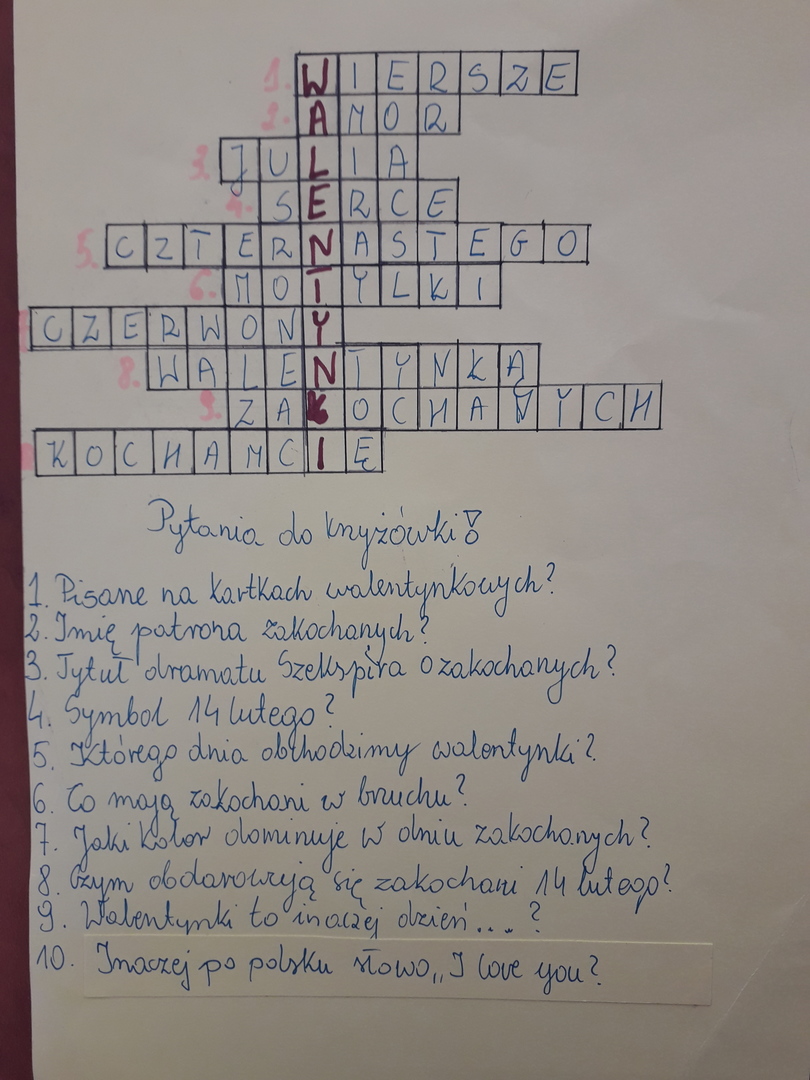 1. WIERSZE
2. AMOR
3. JULIA
4. SERCE
5. CZTERNASTEGO
6. MOTYLKI
CZERWONY
8. WALENTYNKA
9. ZAKOCHANYCH
KOCHAMCIĘ
Pytania do krzyżówki!
1. Pisane na kartkach walentynkowych?
2. Imię patrona zakochanych?
3. Tytuł dramatu Szekspira o zakochanych?
4. Symbol 14 lutego?
5. Którego dnia obchodzimy walentynki?
6. Co mają zakochani w brzuchu?
7. Jaki kolor dominuje w dniu zakochanych?
8. Czym obdarowują się zakochani 14 lutego?
9. Walentynki to inaczej dzień...?
10. Inaczej po polsku słowo „I love you?